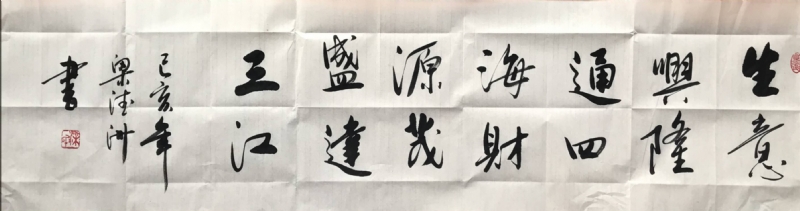 生意
興隆
通四
海財
源茂
盛達
三江
己亥年
梁德洲
書